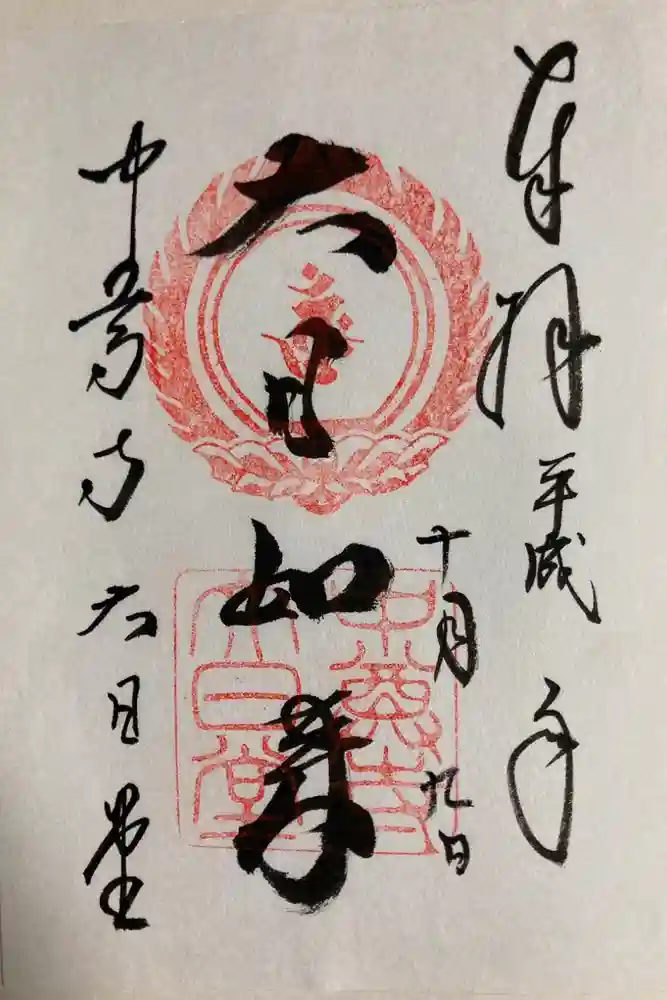 奉拝 平成 年
十月九日
大日如来
中尊寺 大日堂
中尊寺
大日堂